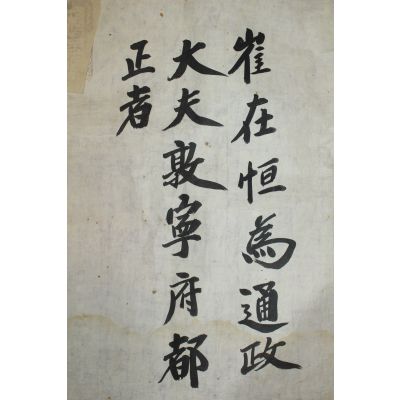 崔在恒為通政
大夫敦寧府都
正者